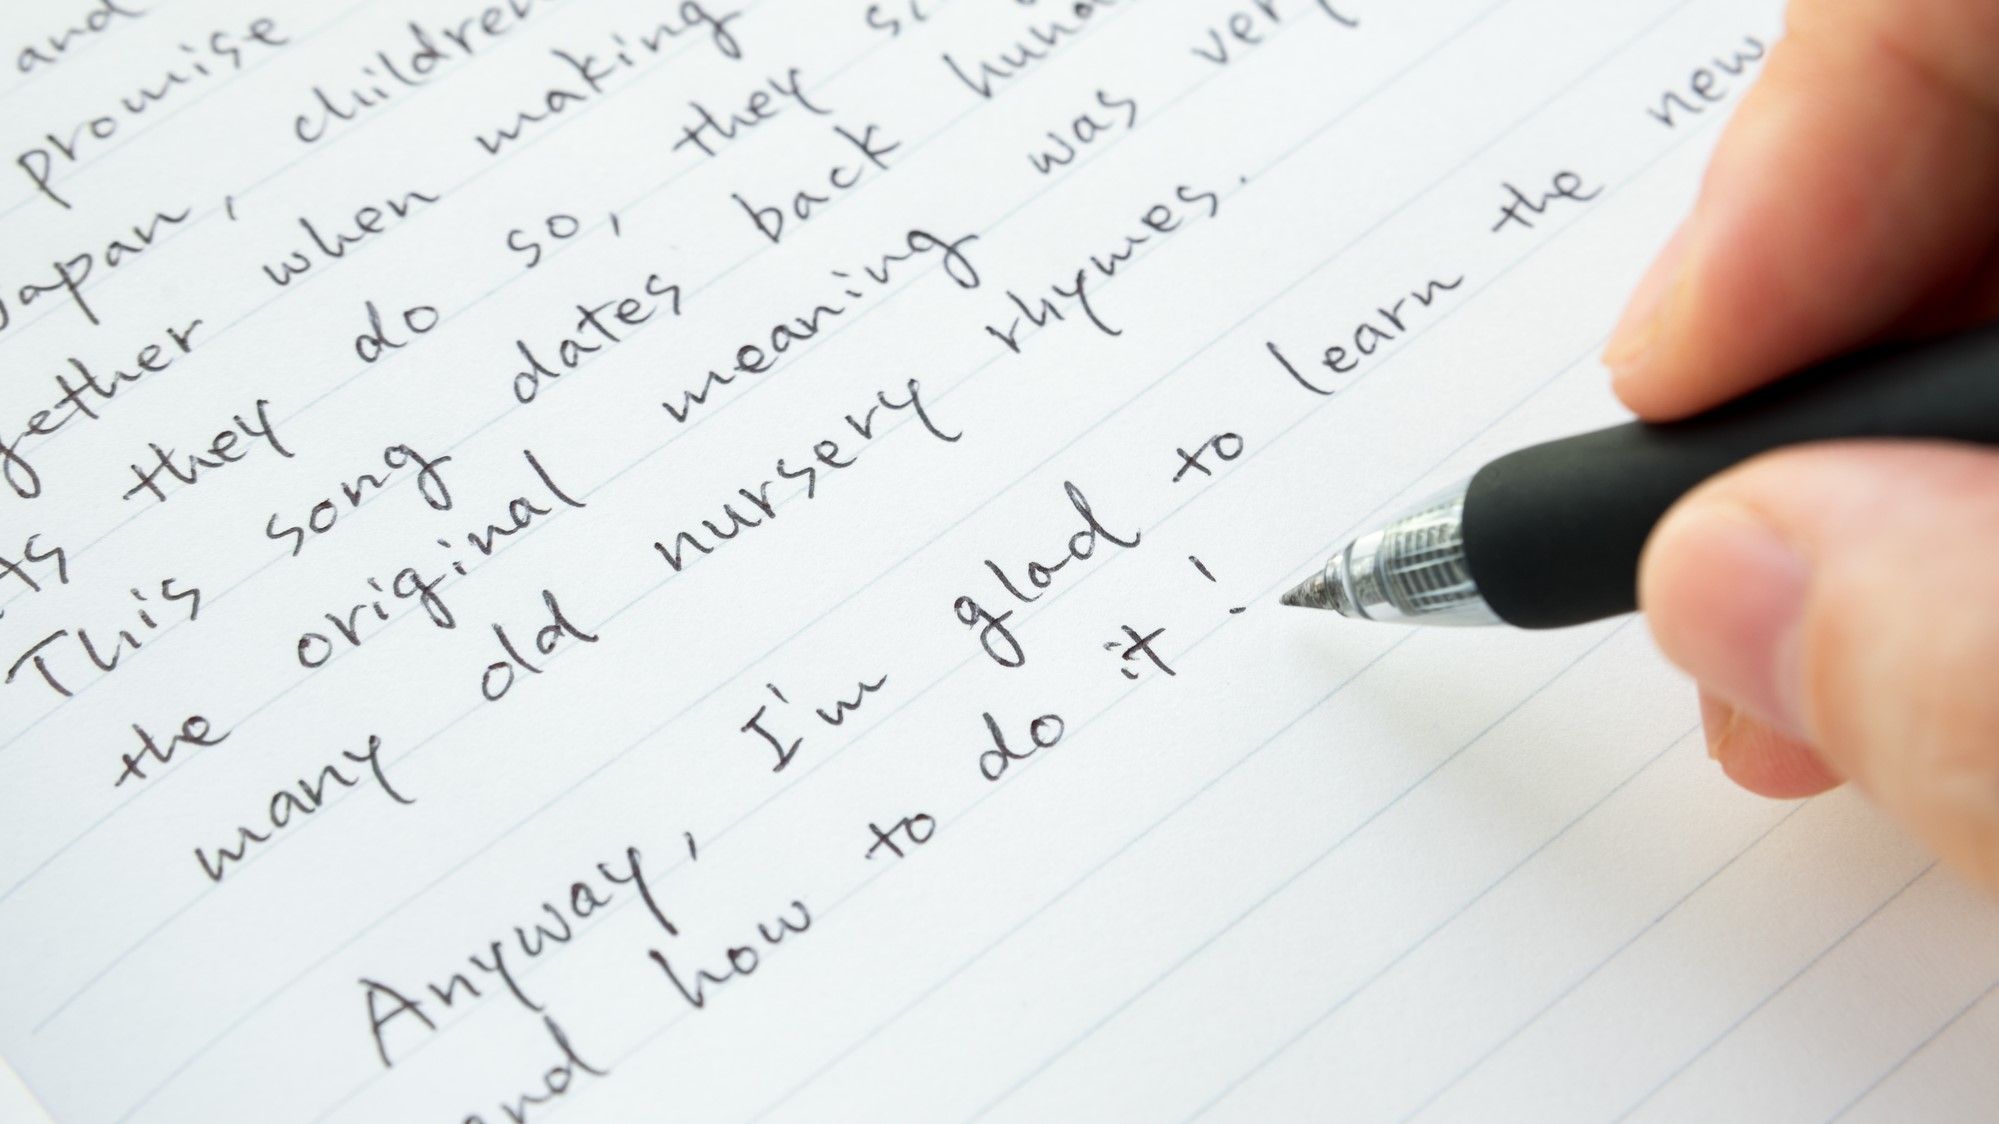 and
promise
Japan, children
gether when making
As they do so, they
This song dates back
the original meaning was very
many old nursery rhymes.
Anyway, I'm glad to learn the new
and how to do it!